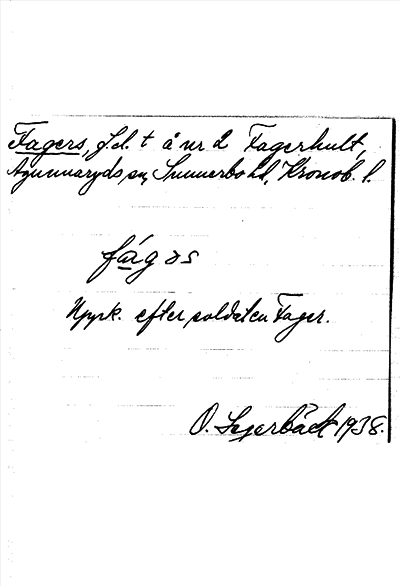 Fagers, f.d. t å nr 2 Fagerhult,
Agunnaryds sn, Sunnerbo hd, Kronob. l.
fág əs
Uppk. efter soldaten Fager.
O. Segerbäck 1938.